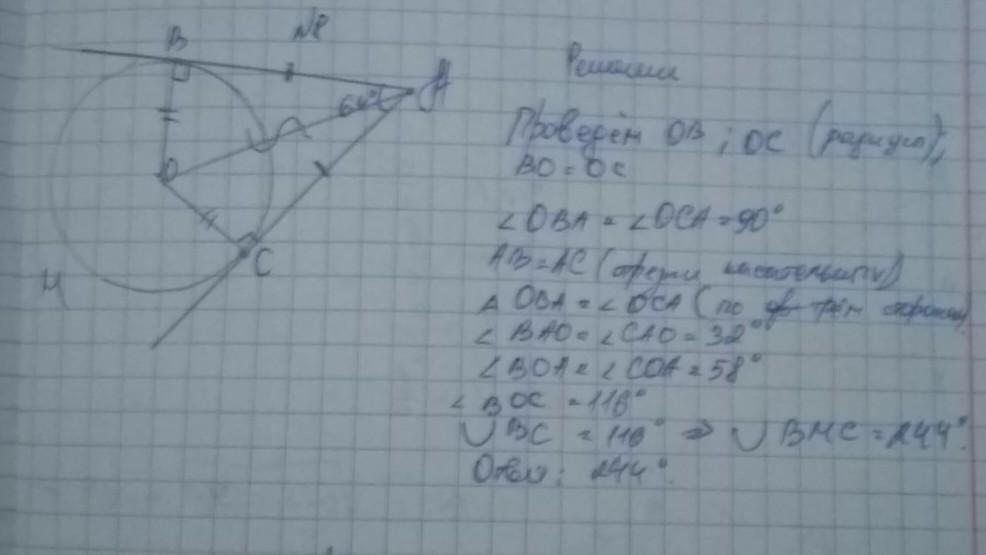 №8
B
64°
A
O
C
M
Решение
Проведём OB ; OC (радиусы),
BO = OC
∠OBA = ∠OCA = 90°
AB = AC (отрезки касательных)
∆ OBA = ∠ OCA (по трём сторонам)
∠ BAO = ∠ CAO = 32°
∠ BOA = ∠ COA = 58°
∠ BOC = 116°
∪ BC = 116° ⇒ ∪ BMC = 244°.
Ответ: 244°.